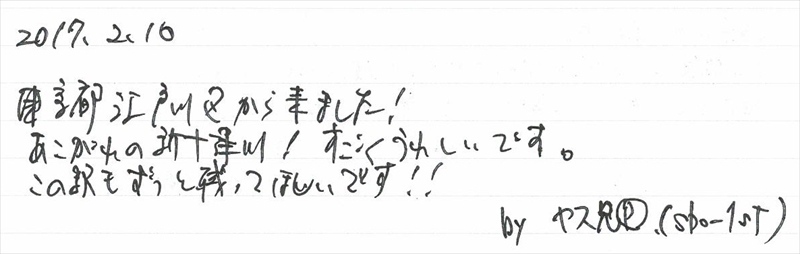 2017. 2. 16
東京都江戸川区から来ました!
あこがれの新十津川! すごくうれしいです。
この駅もずっと残ってほしいです!!
by ヤス兄 (sbo-1st)